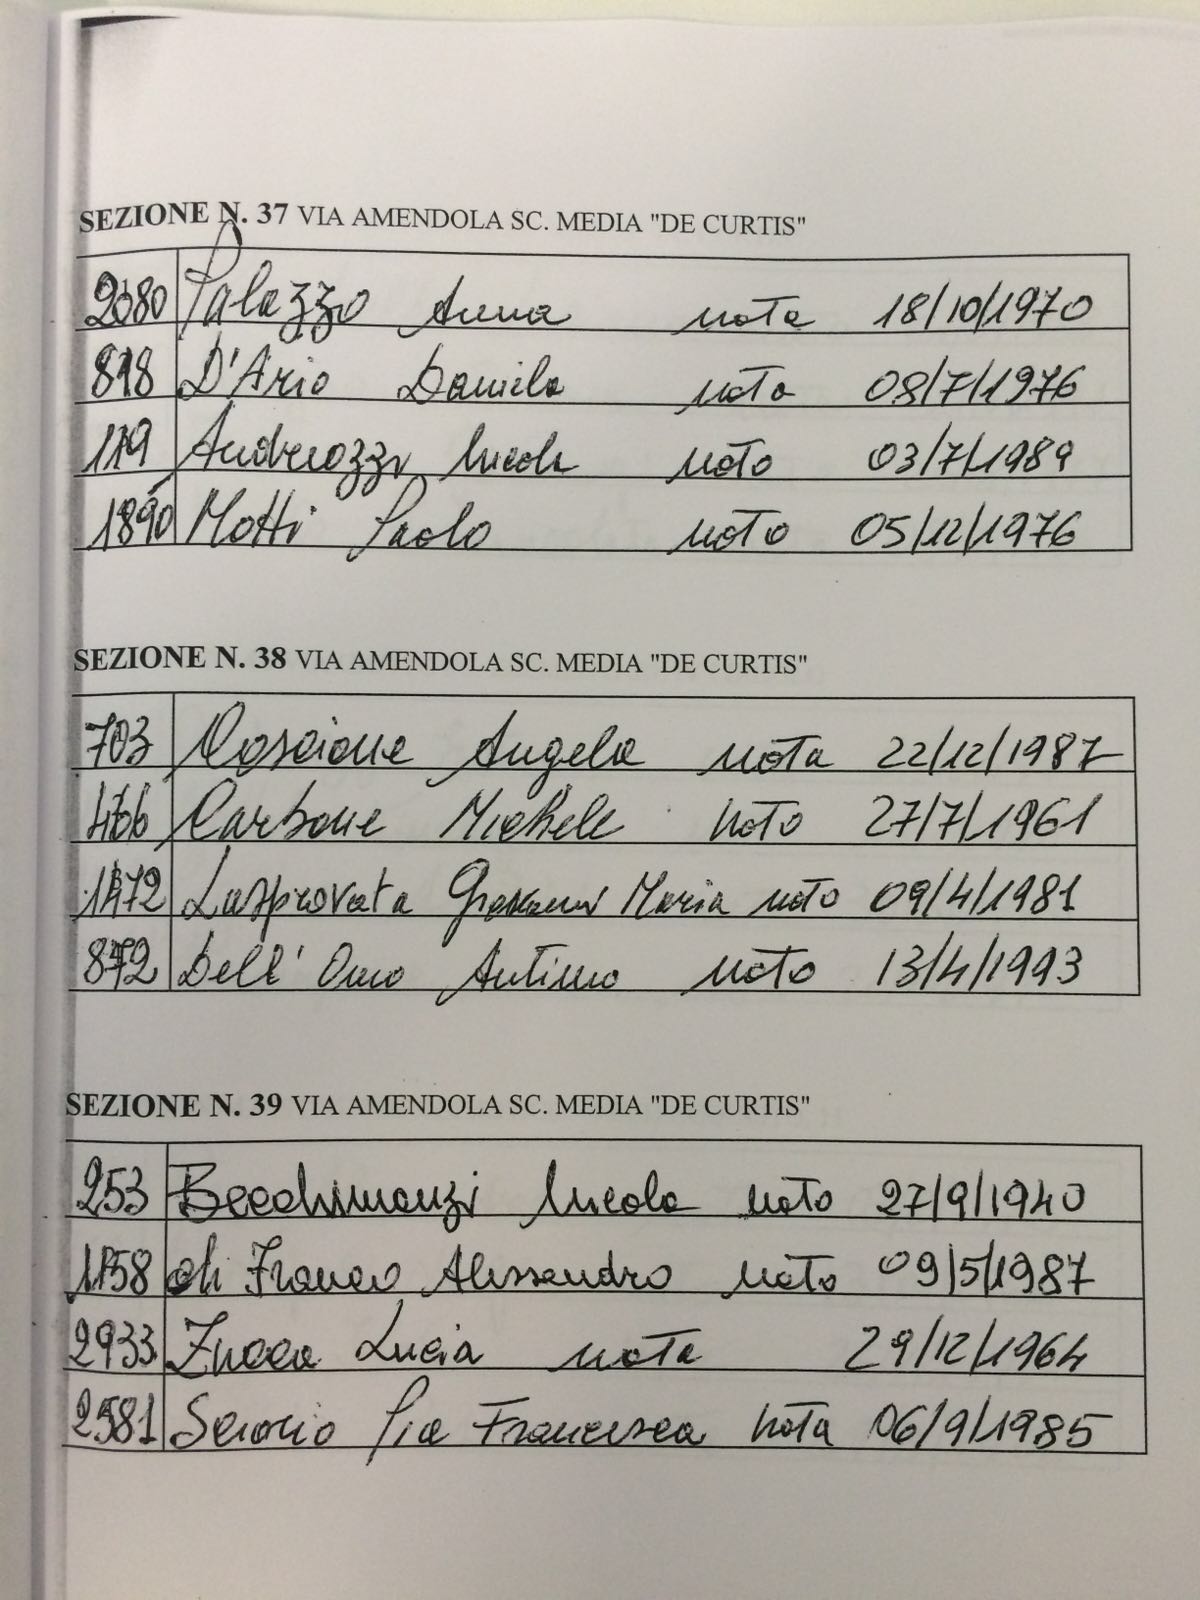 SEZIONE N. 37 VIA AMENDOLA SC. MEDIA "DE CURTIS"
2080 Palazzo Anna nata 18/10/1970
818 D'Ario Daniela nata 08/7/1976
119 Andreozzi Nicola nato 03/7/1989
1890 Motti Paolo nato 05/12/1976
SEZIONE N. 38 VIA AMENDOLA SC. MEDIA "DE CURTIS"
703 Coscione Angela nata 22/12/1987
466 Carbone Michele nato 27/7/1961
1472 Lasprovata Maria nato 09/4/1981
872 Dell'Omo Antimo nato 13/4/1993
SEZIONE N. 39 VIA AMENDOLA SC. MEDIA "DE CURTIS"
253 Nicola nato 27/9/1940
1158 di Franco Alessandro nato 09/5/1987
2933 Zucca Lucia nata 29/12/1964
2581 Pia Francesca nata 06/9/1985